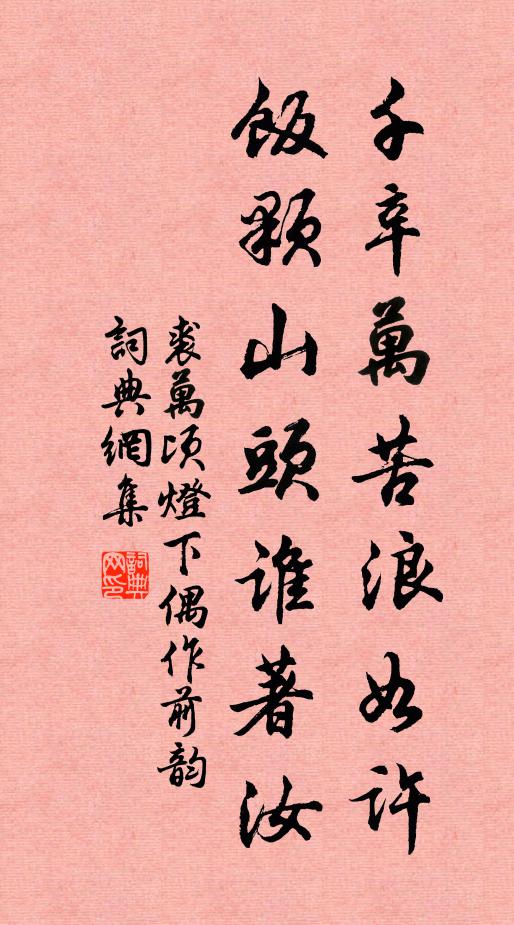 千辛萬苦浪如許
飯顆山頭誰著汝
裘萬頃燈下偶作前韵
詞典網集
詞典网印